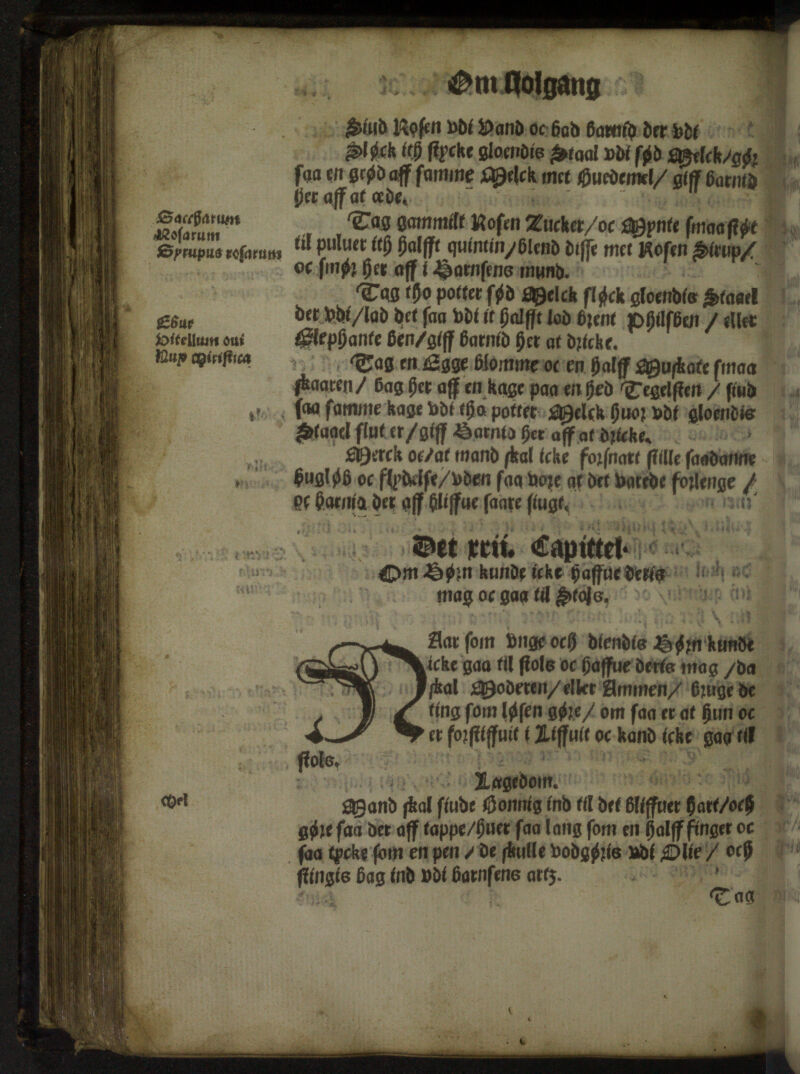 Om Nolgang
Siud Rosen vdi Vand oc bad barnid der vdi
Sløck itH stycke gloendis Staal vdi sød Melck/gør
faa en grød aff samme Melck met Huedemel/ giff barnid
her aff at æde.
Tag gammilt Rosen Zucker/oc Mynte smaastøt
til puluer itH halfft quintin/blend disse met Rosen Sirup/
oc smør her aff i Barnsens mund.
Tag tho potter sød Melck sløck gloendis Staael
der vdi/lad det saa vdi it halfft lod brent Philsben / eller
Elephante ben/giff barnid her at dricke.
Tag en Egge blomme oc en halff Muskate smaa
skaaren/ bag her aff en kage paa en hed Tegelsten / siud
saa samme kage vdi tho potter Melck huor vdi gloendis
Staael slut er/giff Barnid her aff at dricke.
Merck oc/at mand skal icke forsnart stille saadanne
bugløb oc flydelse/vden saa vore at det varede forlenge /
oc barnid der aff bliffue saare siugt.
Det xxii. Capittel
Om Børn kunde icke haffue deris
mag oc gaa til Stols.
Har som vnge och diendis Børn kunde
icke gaa til stols oc haffue deris mag /da
skal Moderen/eller Ammen/ bruge de
ting som løsen gøre/ om saa er at hun oc
er forstiffuit i Liffuit oc kand icke gaa til
stols.
Lægedom.
Mand skal siude Honnig ind til det bliffuer hart/och
gøre saa der aff tappe/huer saa lang som en halff finger oc
saa tycke som en pen / de skulle vodgøris vdi Olie / och
stingis bag ind vdi barnsens artz.
Tag
Saccharum
Rosarum
Syrupus rosarum
Ebur
Vitellum oui
Nup Miristica
Mel